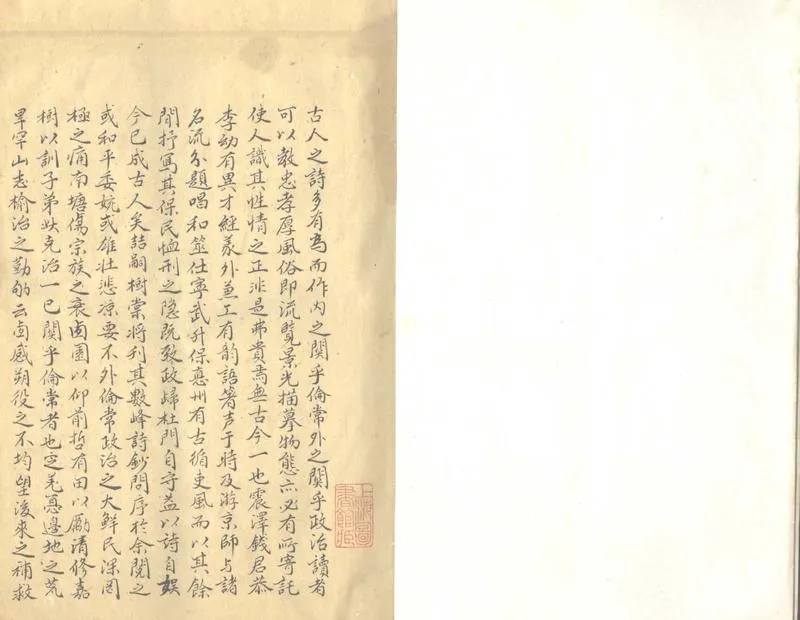 古人之詩多有為而作內之関乎倫常外之関乎政治讀者
可以教忠孝厚風俗即流覽景光描摹物態亦必有所寄託
使人識其性情之正非是弗貴焉無古今一也震澤錢君恭
李幼有異才經義外兼工有韵語著声于時及游京師与諸
名流分題唱和筮仕寧武升保德州有古循吏風而以其餘
閒抒寫其保民恤刑之隐既致政歸杜門自守益以詩自娱
今已成古人矣喆嗣樹棠将刊其數峰詩鈔問序於余閱之
或和平委婉或雄壮悲凉要不外倫常政治之大鮮民深罔
極之痛南塘傷宗族之衰卤園以仰前哲有田以勵清修嘉
樹以訓子弟妖克治一已関乎倫常者也定羌憂邊地之荒
旱罕山志榆治之勤劬云感朔役之不均望後來之補救
上海圖書館